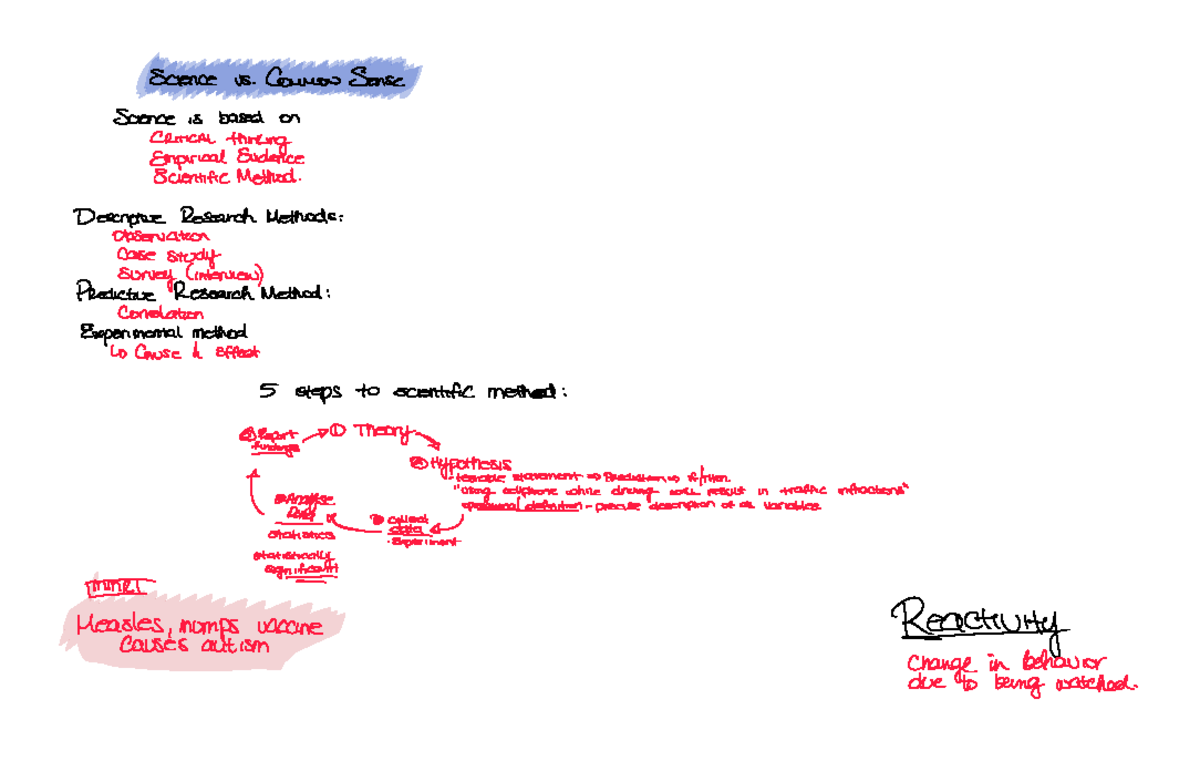 Science vs. Common Sense
Science is based on
Critical thinking
Empirical Evidence
Scientific Method.
Descriptive Research Methods:
Observation
Case study
Survey (interview)
Predictive Research Method:
Correlation
Experimental method
↳ Cause & Effect
5 steps to scientific method:
① Theory
② Hypothesis
- testable statement → Prediction → if/then.
"Using cellphone while driving will result in traffic infractions"
operational definition - precise description of all variables
③ Collect
data
- experiment
④ Analyse
Data
statistics
statistically
significant
⑤ Report
findings
MMR
Measles, mumps vaccine
causes autism
Reactivity
Change in behavior
due to being watched.